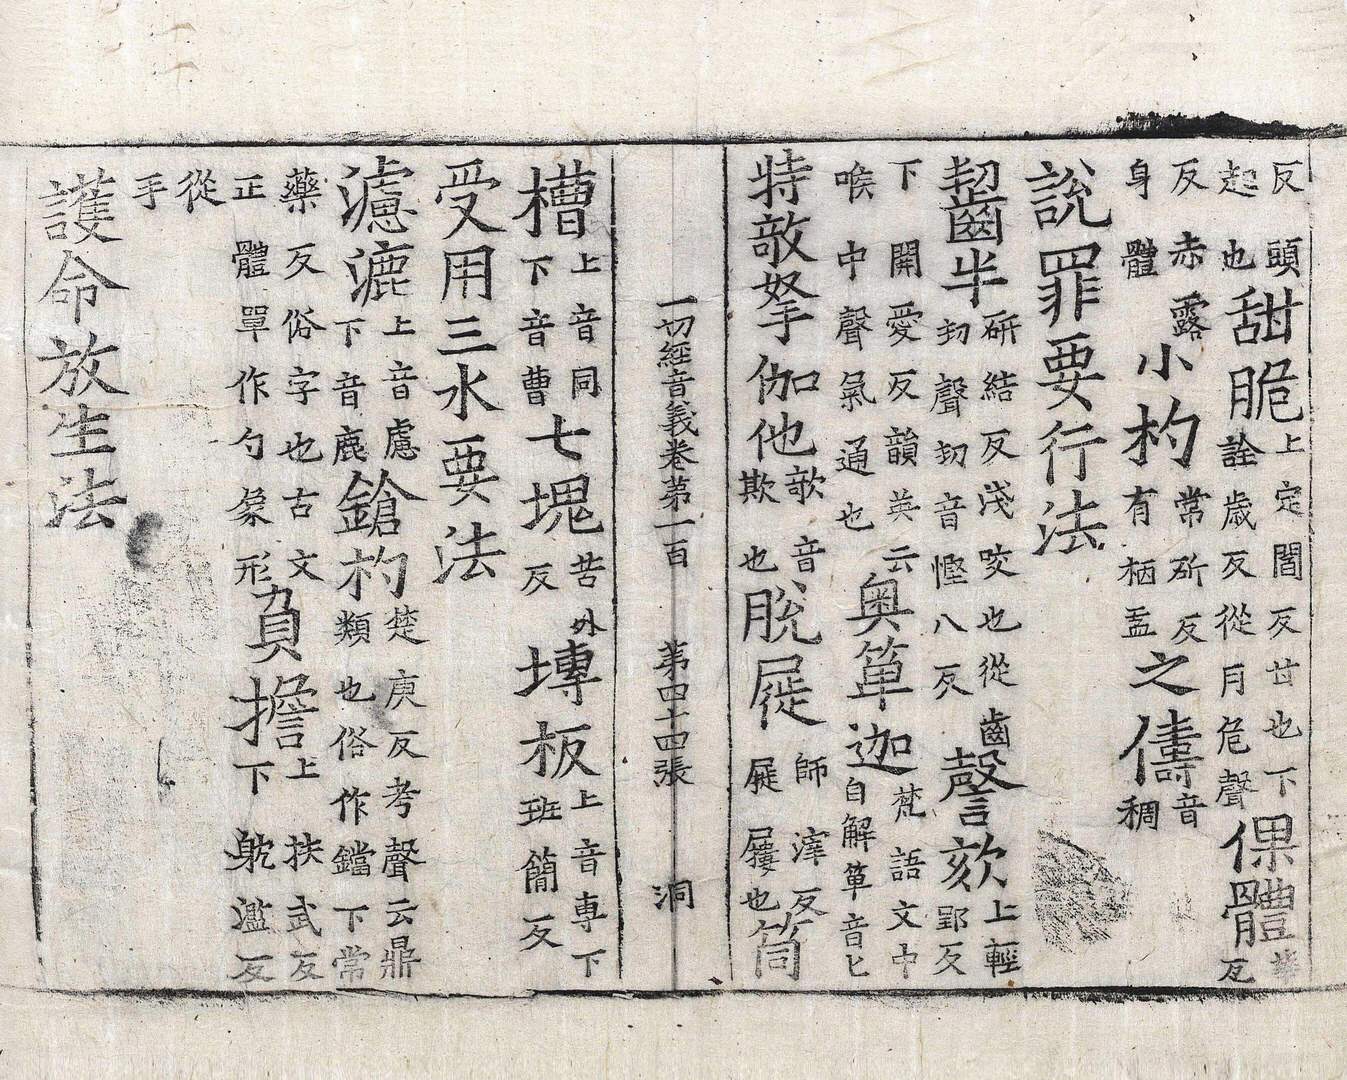 反頭起也甜脆上定閻反甘也下詮歲反從月危聲倮體華瓦
反赤露身體小杓常斫反有柄盂之儔音稠
說罪要行法
齧齒半研結反淺咬也從齒㓞聲㓞音慳八反謦欬上輕郢反
下開愛反韻英云喉中聲氣通也奥箄迦梵語文中自解箄音匕
特敧拏伽他歌音欺也脫屣師滓反屣屨也筒
一切經音義卷第一百 第四十四張 洞
槽上音同下音曹七塊苦外反塼板上音專下班簡反
受用三水要法
濾漉上音慮下音鹿鎗杓楚庚反考聲云鼎類也俗作鐺下常
藥反俗字也古文正體單作勺象形負擔上扶武反下躭濫反
從手
護命放生法